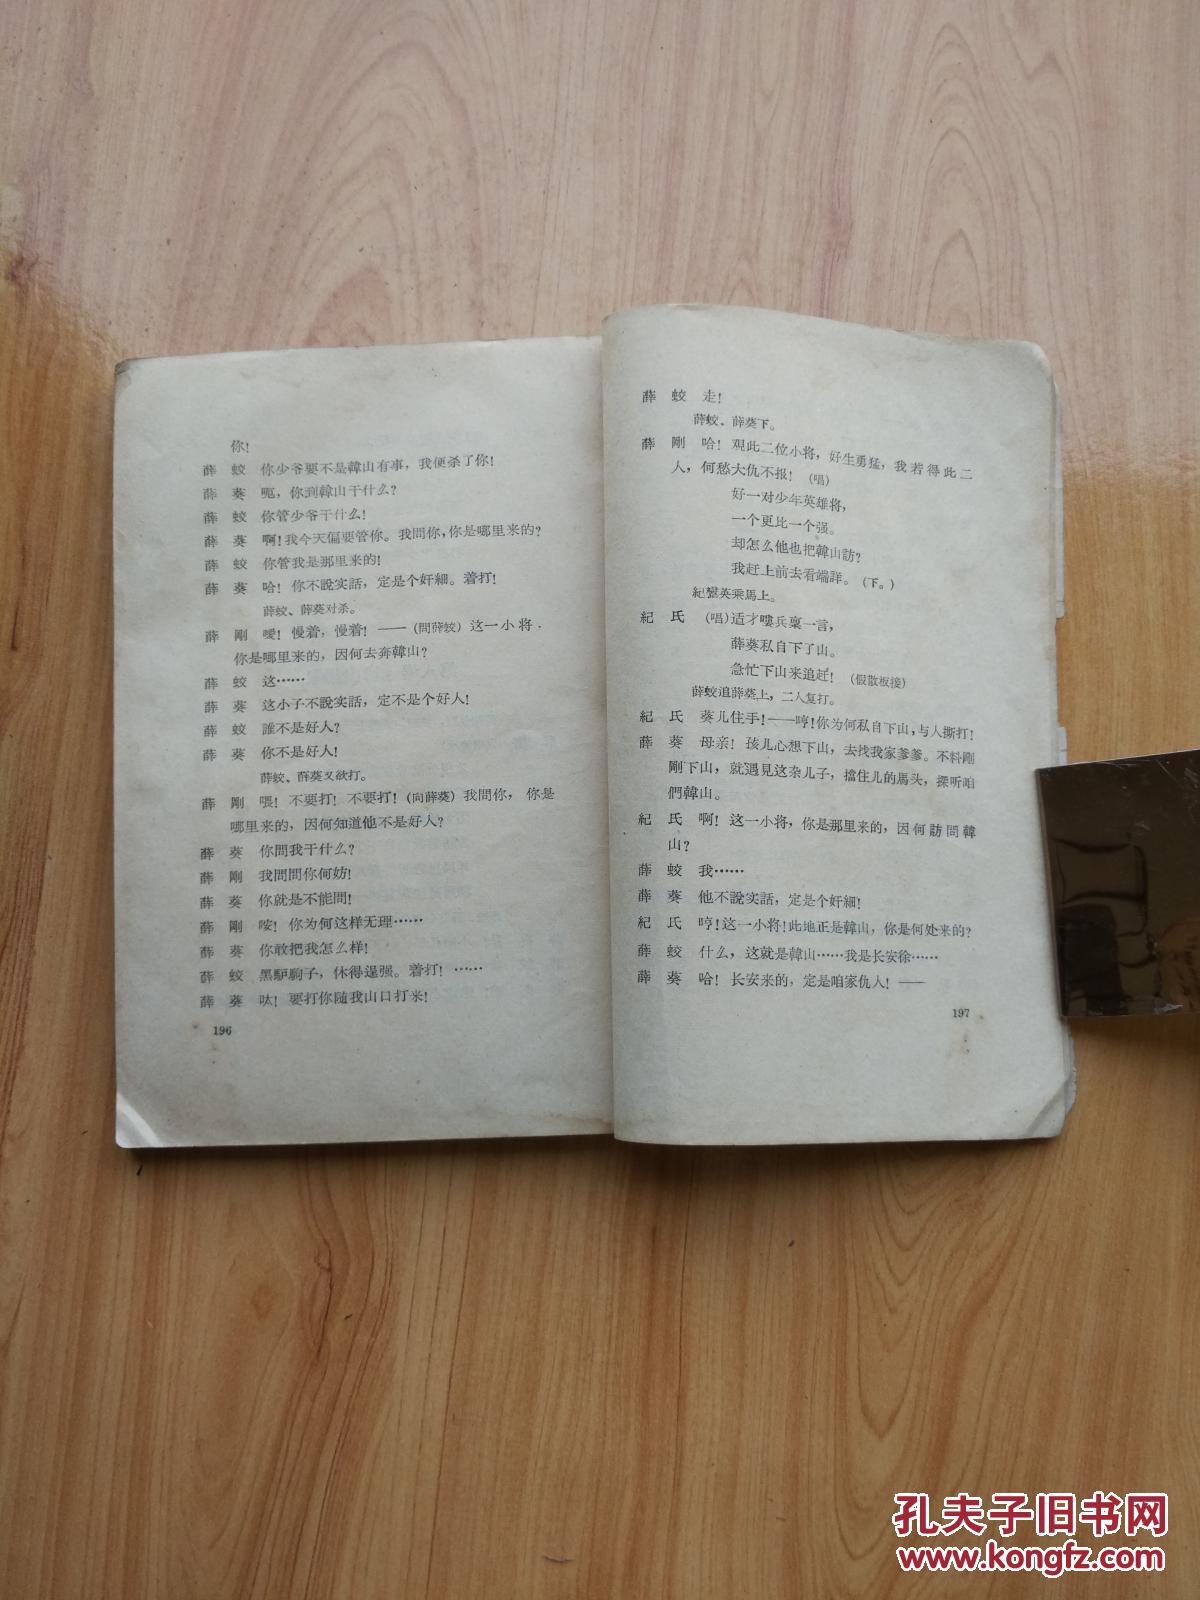 你!
薛 蛟 你少爷要不是韓山有事，我便杀了你!
薛 葵 呃，你到韓山干什么?
薛 蛟 你管少爷干什么!
薛 葵 啊!我今天偏要管你。我問你，你是哪里来的?
薛 蛟 你管我是那里来的!
薛 葵 哈! 你不說实話，定是个奸細。着打!
薛蛟、薛葵对杀。
薛 剛 噯! 慢着，慢着! ——(問薛蛟) 这一小将．
你是哪里来的，因何去奔韓山?
薛 蛟 这……
薛 葵 这小子不說实話，定不是个好人!
薛 蛟 誰不是好人?
薛 葵 你不是好人!
薛蛟、薛葵又欲打。
薛 剛 喂! 不要打! 不要打! (向薛葵) 我問你，你是
哪里来的，因何知道他不是好人?
薛 葵 你問我干什么?
薛 剛 我問問你何妨!
薛 葵 你就是不能問!
薛 剛 唉! 你为何这样无理……
薛 葵 你敢把我怎么样!
薛 蛟 黑馿駒子，休得逞强。着打! ……
薛 葵 呔! 要打你随我山口打来!
196
薛 蛟 走!
薛蛟、薛葵下。
薛 剛 哈! 观此二位小将，好生勇猛，我若得此二
人，何愁大仇不报! (唱)
好一对少年英雄将，
一个更比一个强。
却怎么他也把韓山訪?
我赶上前去看端詳。(下。)
紀鸞英乘馬上。
紀 氏 (唱)适才嘍兵稟一言，
薛葵私自下了山。
急忙下山来追赶! (假散板接)
薛蛟追薛葵上，二人复打。
紀 氏 葵儿住手!——哼!你为何私自下山，与人撕打!
薛 葵 母亲! 孩儿心想下山，去找我家爹爹。不料剛
剛下山，就遇見这杂儿子，擋住儿的馬头，探听咱
們韓山。
紀 氏 啊! 这一小将，你是那里来的，因何訪問韓
山?
薛 蛟 我……
薛 葵 他不說实話，定是个奸細!
紀 氏 哼!这一小将!此地正是韓山，你是何处来的?
薛 蛟 什么，这就是韓山……我是长安徐……
薛 葵 哈! 长安来的，定是咱家仇人! ——
197
孔夫子旧书网
www.kongfz.com